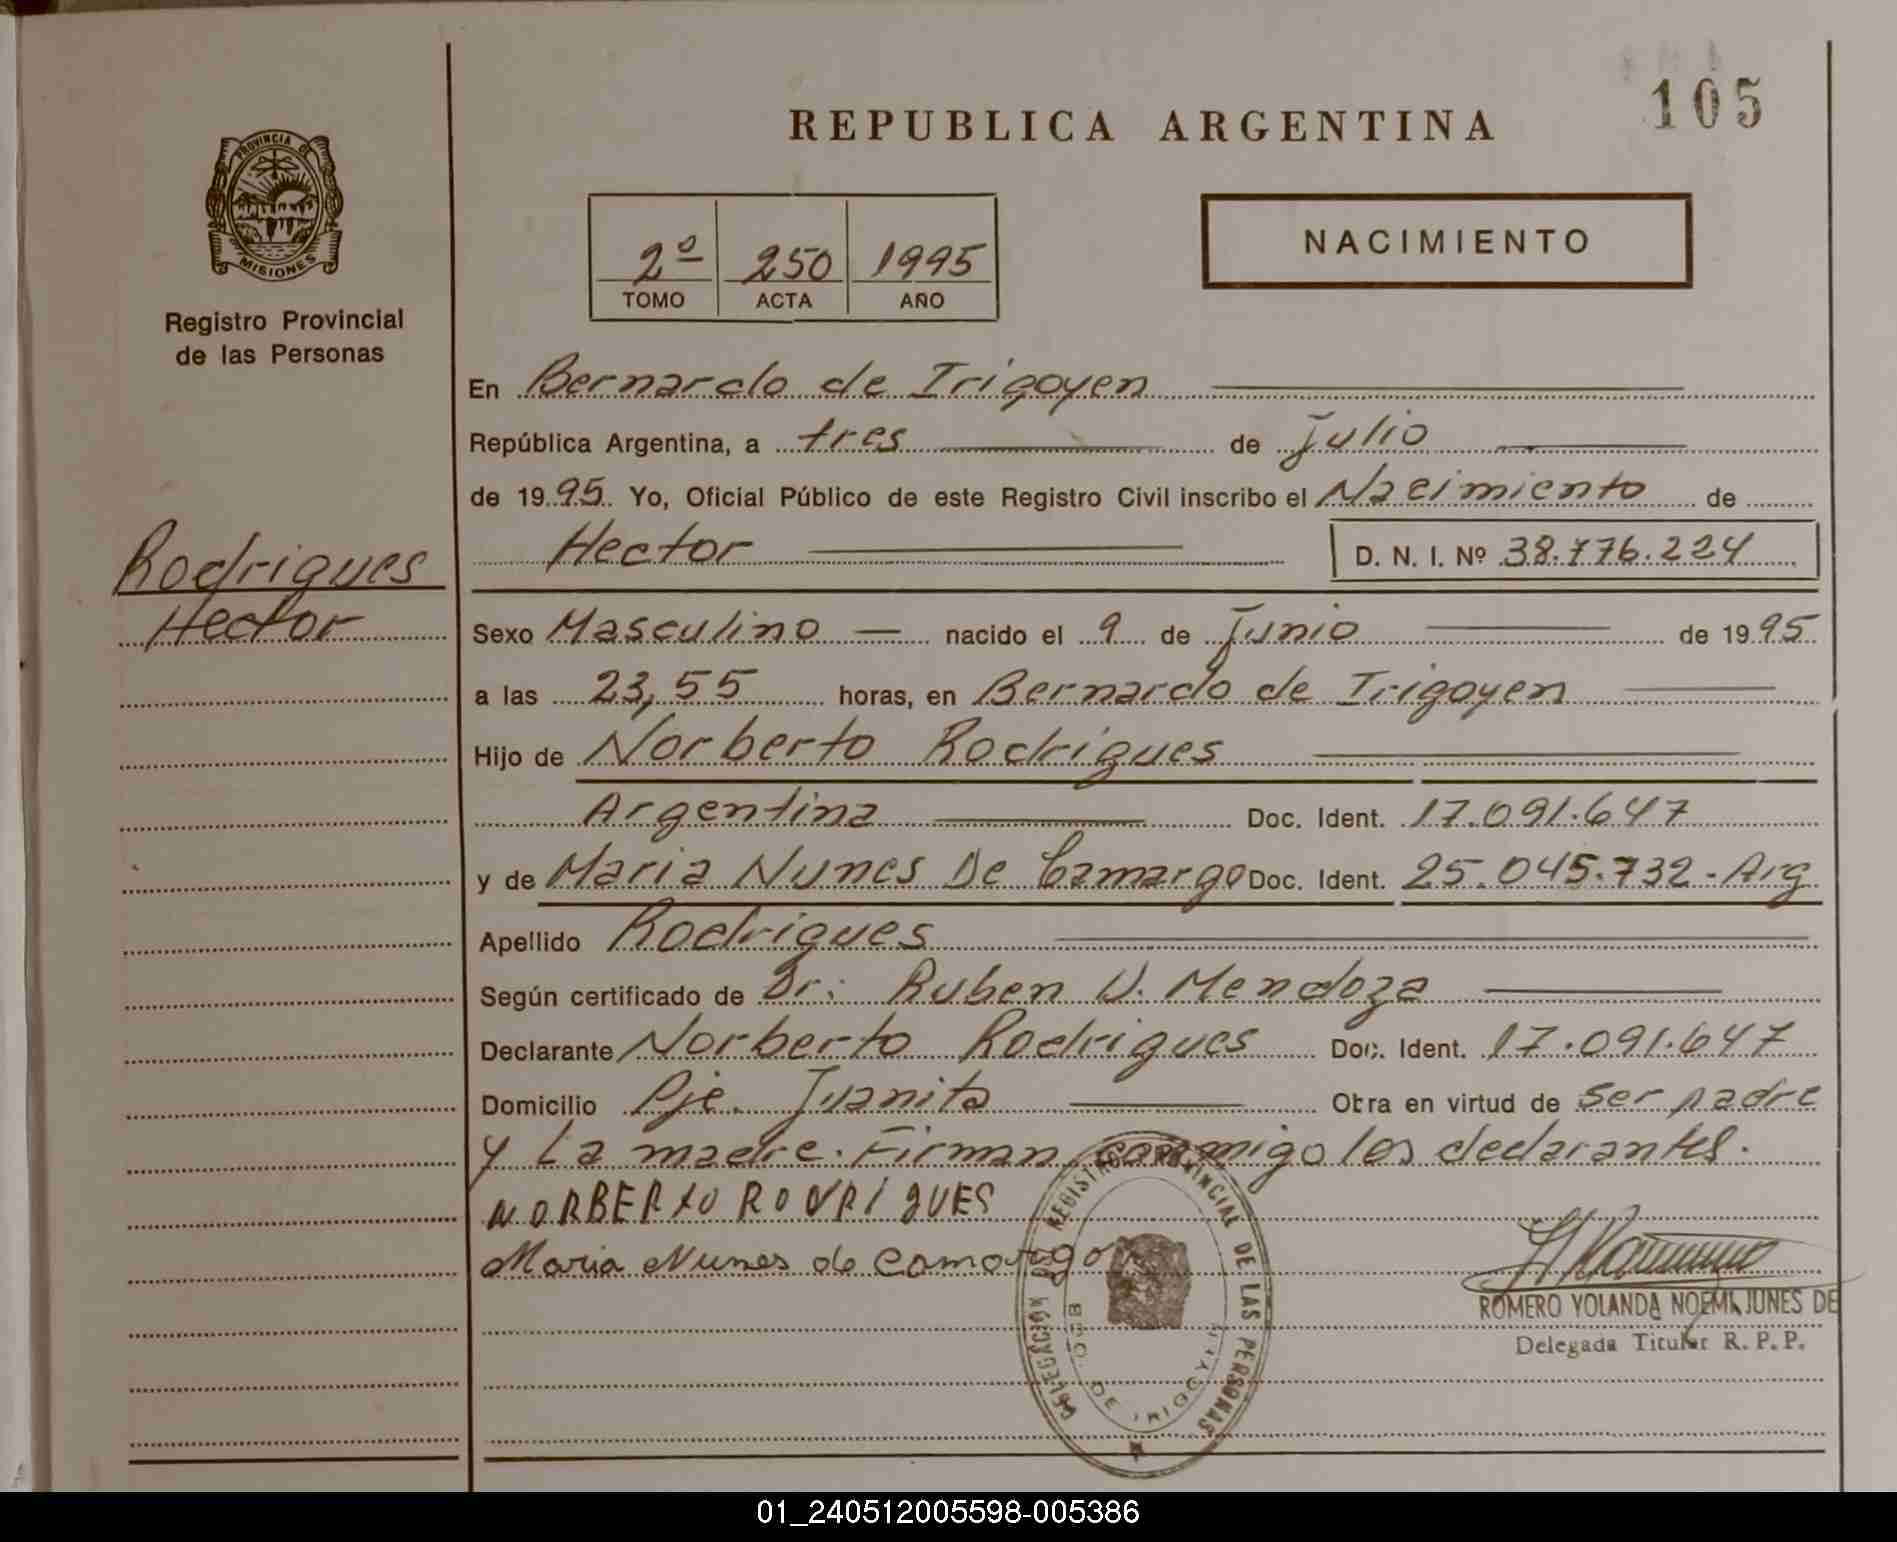 105
REPUBLICA ARGENTINA
PROVINCIA DE
MISIONES
Registro Provincial
de las Personas
2º 250 1995
TOMO ACTA AÑO
NACIMIENTO
En Bernardo de Irigoyen
República Argentina, a tres de Julio
de 1995 Yo, Oficial Público de este Registro Civil inscribo el Nacimiento de
Hector D. N. I. Nº 38.776.224
Rodrigues
Hector
Sexo Masculino nacido el 9 de Junio de 1995
a las 23,55 horas, en Bernardo de Irigoyen
Hijo de Norberto Rodrigues
Argentina Doc. Ident. 17.091.647
y de Maria Nunes De Camargo Doc. Ident. 25.045.732 - Arg
Apellido Rodrigues
Según certificado de Dr: Ruben D. Mendoza
Declarante Norberto Rodrigues Doc. Ident. 17.091.647
Domicilio Pje. Juanita Obra en virtud de ser padre
y La madre. Firman conmigo los declarantes.
NORBERTO RODRIGUES
Maria Nunes de Camargo
DELEGACION DEL REGISTRO PROVINCIAL DE LAS PERSONAS
BDO. DE IRIGOYEN
ROMERO YOLANDA NOEMI JUNES DE
Delegada Titular R. P. P.
01_240512005598-005386